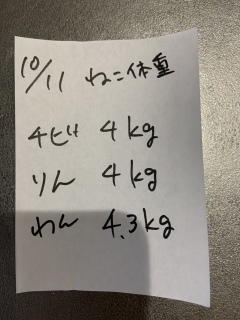 10/11 ねこ体重
チビ 4kg
りん 4kg
わん 4.3kg